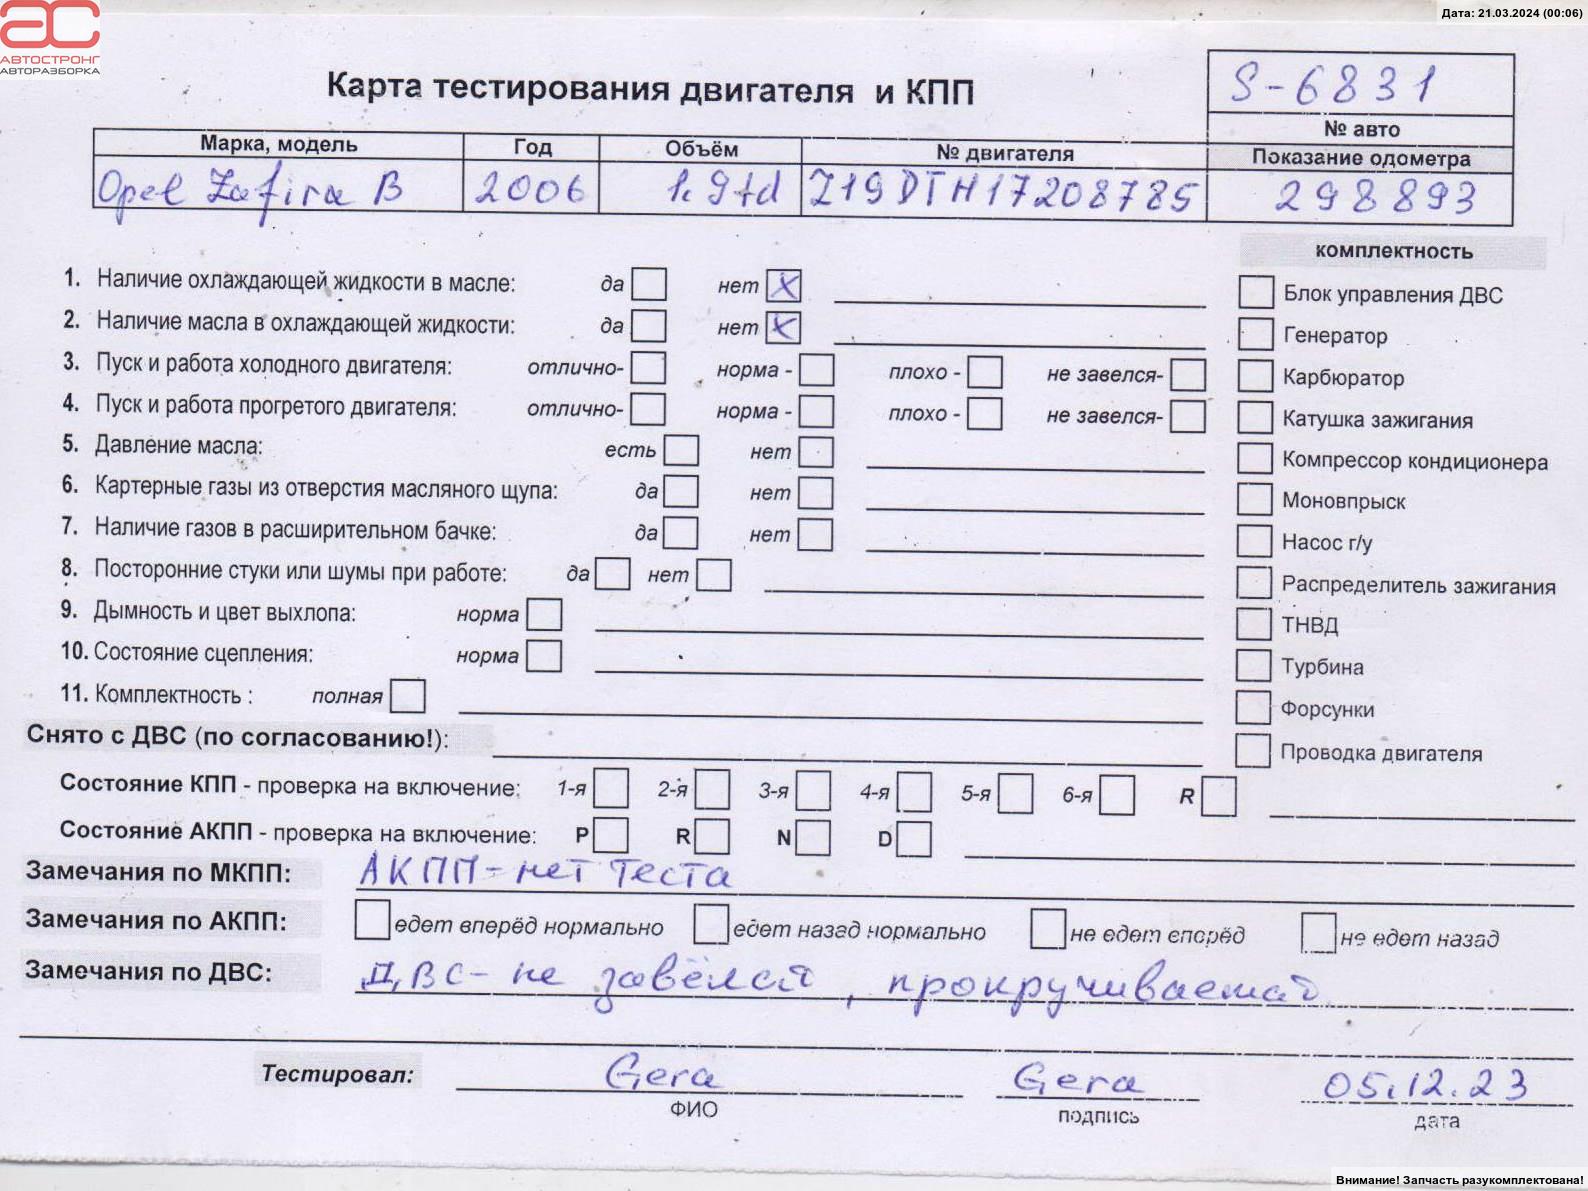 Дата: 21.03.2024 (00:06)
АВТОСТРОНГ
АВТОРАЗБОРКА
Карта тестирования двигателя и КПП
S-6831
№ авто
Марка, модель Год Объём № двигателя Показание одометра
Opel Zafira B 2006 1.9td Z19DTH17208785 298893
комплектность
1. Наличие охлаждающей жидкости в масле: да нет X
Блок управления ДВС
2. Наличие масла в охлаждающей жидкости: да нет X
Генератор
3. Пуск и работа холодного двигателя: отлично- норма - плохо - не завелся-
Карбюратор
4. Пуск и работа прогретого двигателя: отлично- норма - плохо - не завелся-
Катушка зажигания
5. Давление масла: есть нет
Компрессор кондиционера
6. Картерные газы из отверстия масляного щупа: да нет
Моновпрыск
7. Наличие газов в расширительном бачке: да нет
Насос г/у
8. Посторонние стуки или шумы при работе: да нет
Распределитель зажигания
9. Дымность и цвет выхлопа: норма
ТНВД
10. Состояние сцепления: норма
Турбина
11. Комплектность : полная
Форсунки
Снято с ДВС (по согласованию!):
Проводка двигателя
Состояние КПП - проверка на включение: 1-я 2-я 3-я 4-я 5-я 6-я R
Состояние АКПП - проверка на включение: P R N D
Замечания по МКПП: АКПП-нет теста
Замечания по АКПП: едет вперёд нормально едет назад нормально не едет вперёд не едет назад
Замечания по ДВС: ДВС- не завёлся, прокручивается
Тестировал: Gera Gera 05.12.23
ФИО подпись дата
Внимание! Запчасть разукомплектована!